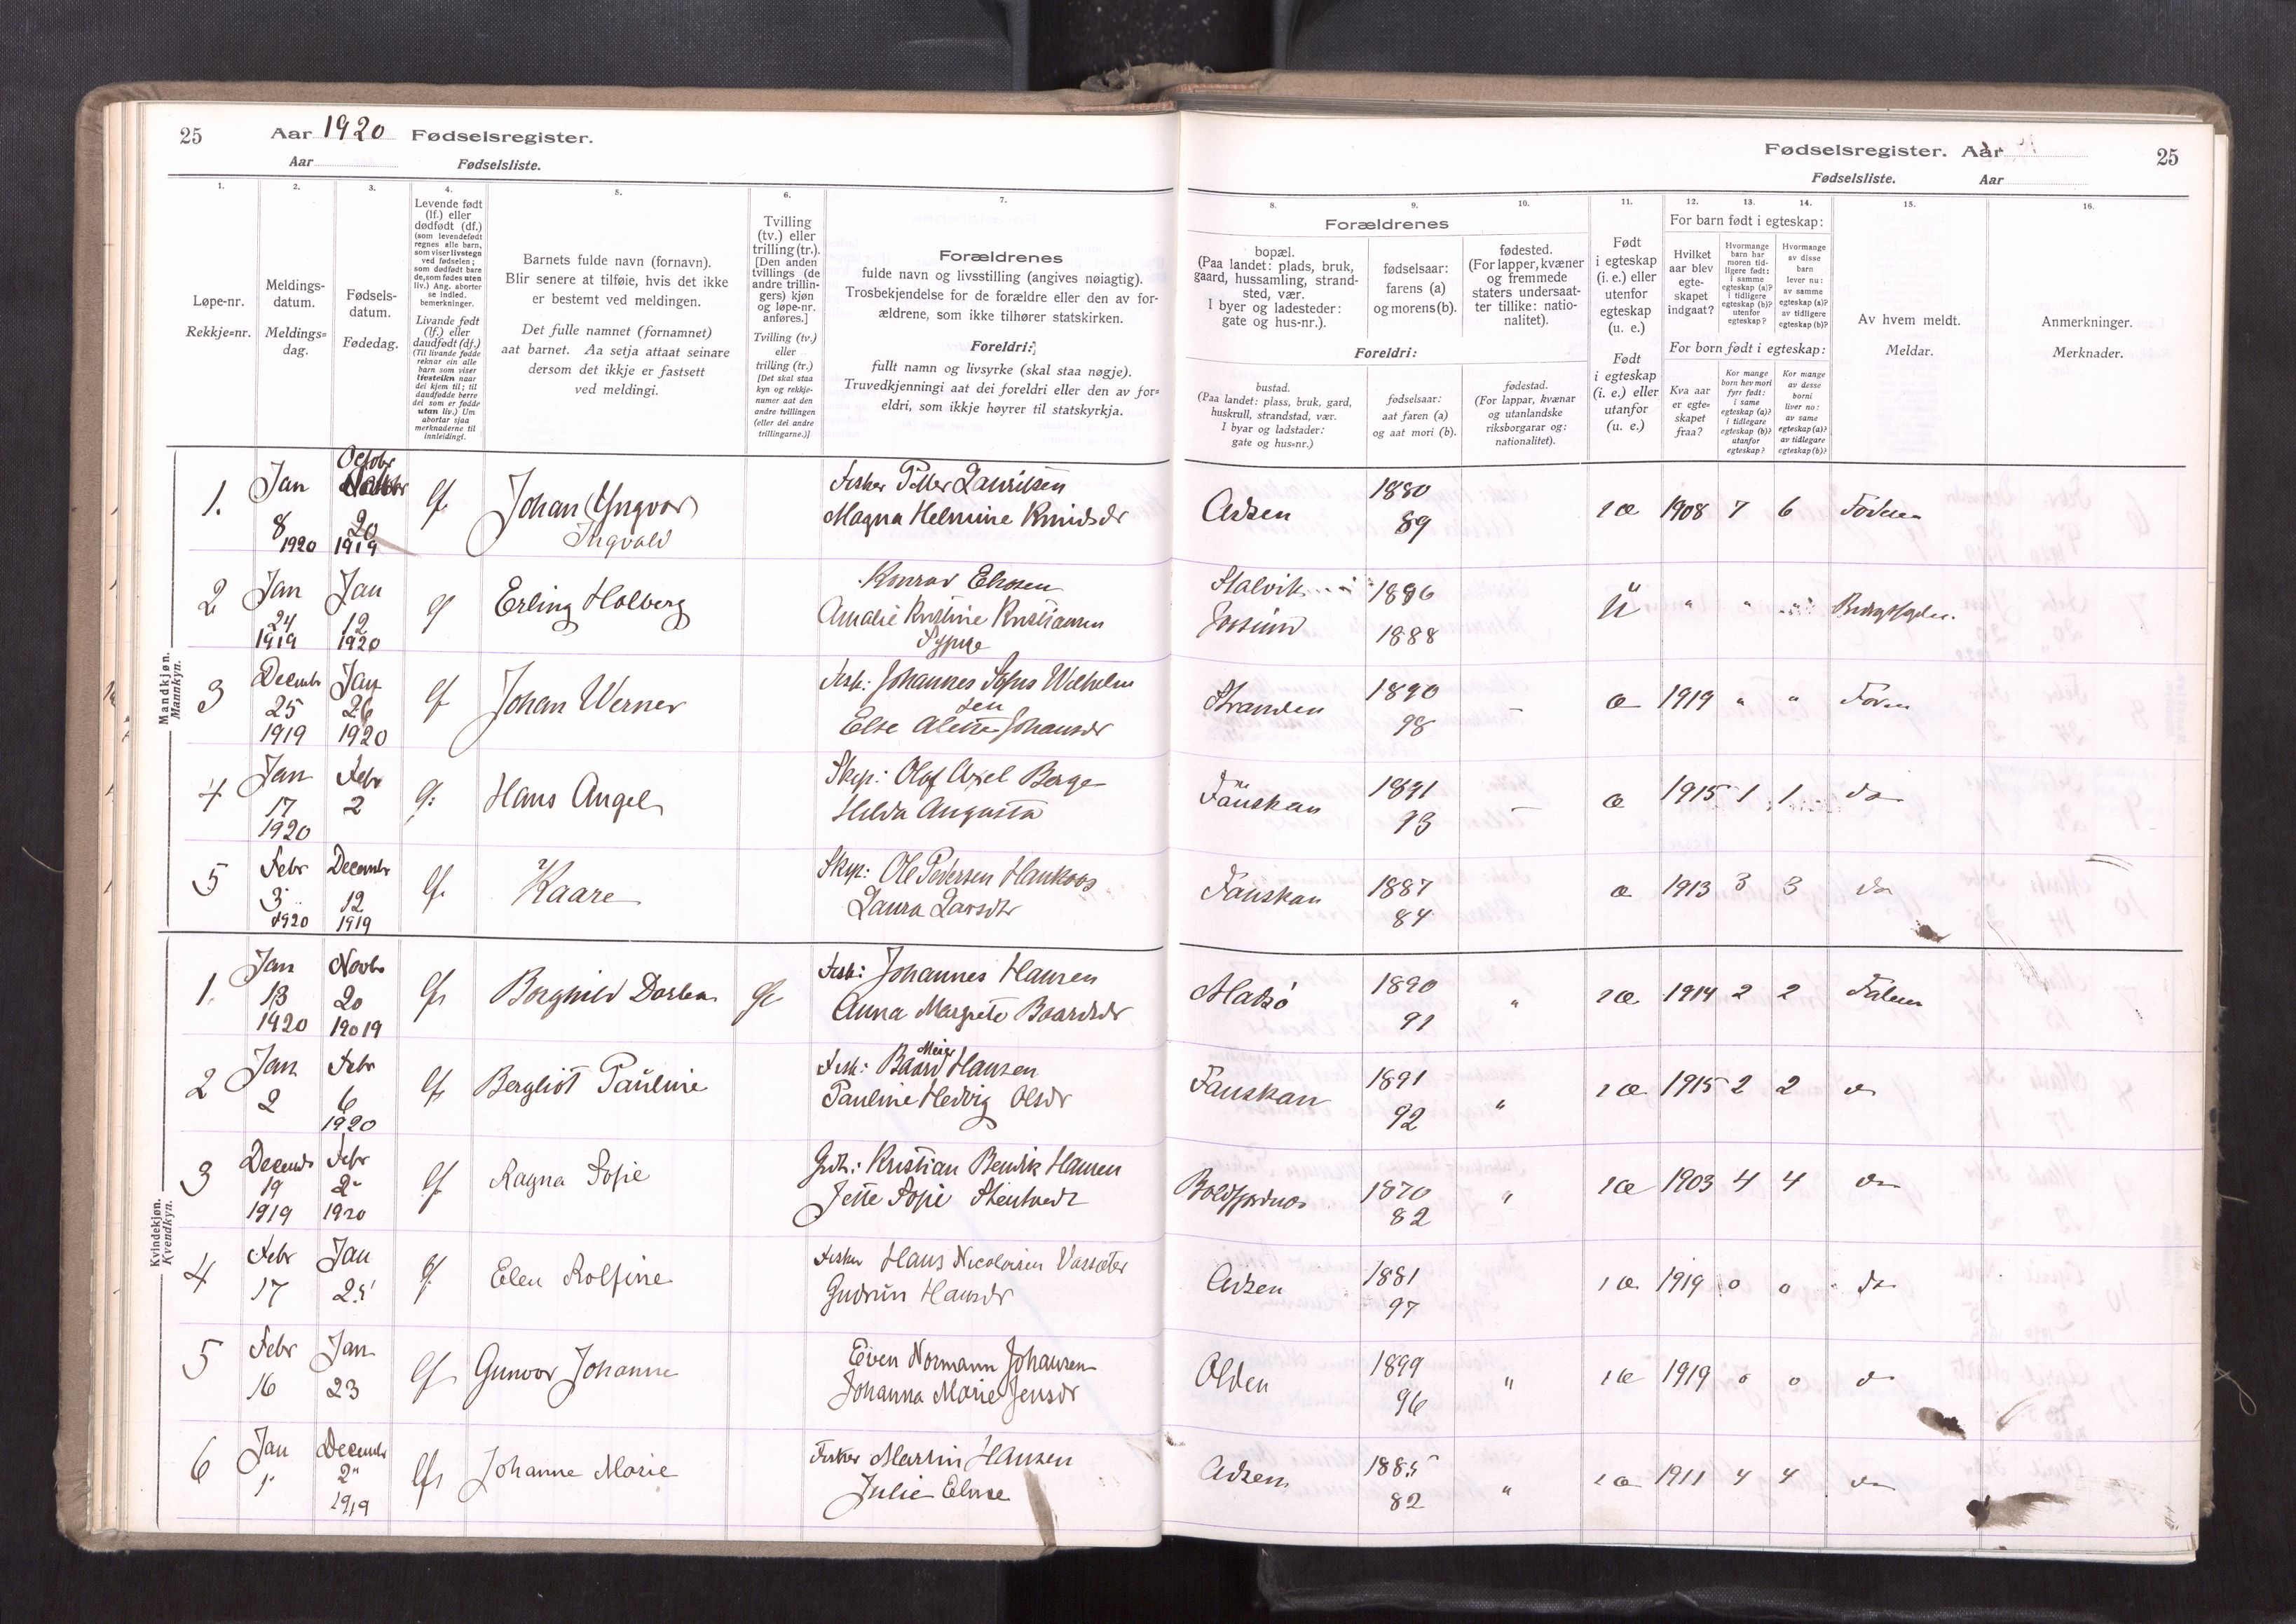 25 Aar 1920 Fødselsregister.
Aar Fødselsliste.
Fødselsregister. Aar 25
Fødselsliste. Aar
1. 2. 3. 4. 5. 6. 7. 8. 9. 10. 11. 12. 13. 14. 15. 16.
Løpe-nr.
Rekkje-nr.
Meldings-
datum.
Meldings-
dag.
Fødsels-
datum.
Fødedag.
Levende født
(lf.) eller
dødfødt (df.)
(som levendefødt
regnes alle barn,
som viser livstegn
ved fødselen;
som dødfødt bare
de, som fødes uten
liv.) Ang. aborter
se indled.
bemerkninger.
Livande født
(lf.) eller
daudfødt (df.)
(Til livande fødde
reknar ein alle
barn som viser
livsteikn naar
dei kjem til; til
daudfødde berre
dei som er fødde
utan liv.) Um
abortar sjaa
merknaderne til
innleidingi.
Barnets fulde navn (fornavn).
Blir senere at tilføie, hvis det ikke
er bestemt ved meldingen.
Det fulle namnet (fornamnet)
aat barnet. Aa setja attaat seinare
dersom det ikkje er fastsett
ved meldingi.
Tvilling
(tv.) eller
trilling (tr.).
[Den anden
tvillings (de
andre trillin-
gers) kjøn
og løpe-nr.
anføres.]
Tvilling (tv.)
eller
trilling (tr.)
[Det skal staa
kyn og rekkje-
numer aat den
andre tvillingen
(eller dei andre
trillingarne.)]
Forældrenes
fulde navn og livsstilling (angives nøiagtig).
Trosbekjendelse for de forældre eller den av for-
ældrene, som ikke tilhører statskirken.
Foreldri:
fullt namn og livsyrke (skal staa nøgje).
Truvedkjenningi aat dei foreldri eller den av for-
eldri, som ikkje høyrer til statskyrkja.
Forældrenes
bopæl.
(Paa landet: plads, bruk,
gaard, hussamling, strand-
sted, vær.
I byer og ladesteder:
gate og hus-nr.).
fødselsaar:
farens (a)
og morens (b).
fødested.
(For lapper, kvæner
og fremmede
staters undersaat-
ter tillike: natio-
nalitet).
Foreldri:
bustad.
(Paa landet: plass, bruk, gard,
huskrull, strandstad, vær.
I byar og ladstader:
gate og hus-nr.)
fødselsaar:
aat faren (a)
og aat mori (b).
fødestad.
(For lappar, kvænar
og utanlandske
riksborgarar og:
nationalitet).
Født
i egteskap
(i. e.) eller
utenfor
egteskap
(u. e.)
Født
i egteskap
(i. e.) eller
utanfor
(u. e.)
For barn født i egteskap:
Hvilket
aar blev
egte-
skapet
indgaat?
Hvormange
barn har
moren tid-
ligere født:
i samme
egteskap (a)?
i tidligere
egteskap (b)?
utenfor
egteskap?
Hvormange
av disse
barn
lever nu:
av samme
egteskap (a)?
av tidligere
egteskap (b)?
For born født i egteskap:
Kva aar
er egte-
skapet
fraa?
Kor mange
born hev mori
fyrr født:
i same
egteskap (a)?
i tidlegare
egteskap (b)?
utanfor
egteskap?
Kor mange
av desse
borni
liver no:
av same
egteskap (a)?
av tidlegare
egteskap (b)?
Av hvem meldt.
Meldar.
Anmerkninger.
Merknader.
Mandkjøn.
Mannkyn.
1. Jan 8 1920 Octobr 20 1919 lf. Johan (Yngvar) Fisker Petter Lauritsen 1880 1908 7 6
Ingvald Magna Helmine Knudsdr 89
2 Jan 24 1919 Jan 12 1920 lf Erling Holberg Konrad Stalvik 1886
Amalie Kristine Kristiansen 1888
3 Decembr 25 1919 Jan 26 1920 lf Johan Werner Fisk: Johannes Sofus Wilhelm Stranden 1890 æ 1919 " "
sen
Else Alette Johansdr 98
4 Jan 17 1920 Febr 2 lf: Hans Angel Skip: Olof Axel Berge Fauskan 1891 æ 1915 1 1 do
Hilda Augusta 93
5 Febr 3 1920 Decembr 12 1919 lf. Kaare Skip: Ole Pedersen Fauskan 1887 æ 1913 3 3 do
Laura Larsdtr 84
Kvindekjøn.
Kvendkyn.
1. Jan 13 1920 Novbr 20 19019 lf Borghild Fisk: Johannes Hansen 1890 " i æ 1914 2 2
Anna Margrete Baardsdr 91
2 Jan 2 Febr 6 1920 lf Bergliot Pauline Fisk: Baard Meier Hansen Fauskan 1891 " i æ 1915 2 2
Pauline Hedvig Olsdr 92
3 Decembr 19 1919 Febr 2 1920 lf. Ragna Sofie Kristian Bendik Hansen 1870 " i æ 1903 4 4
Jette Sofie 82
4 Febr 17 Jan 25 lf Elen Rolfine Fisker Hans Nicolaisen Vassæter 1881 i æ 1919 0 0 do
Gudrun Hansdr 97
5 Febr 16 Jan 23 lf Gunvor Johanne Even Normann Johansen Olden 1899 " i æ 1919 0 0
Johanna Marie Jensdr 96
6 Jan Decembr 2 1919 lf Johanne Marie Fisker Martin Hansen 1885 " i æ 1911 4 4
Julie 82